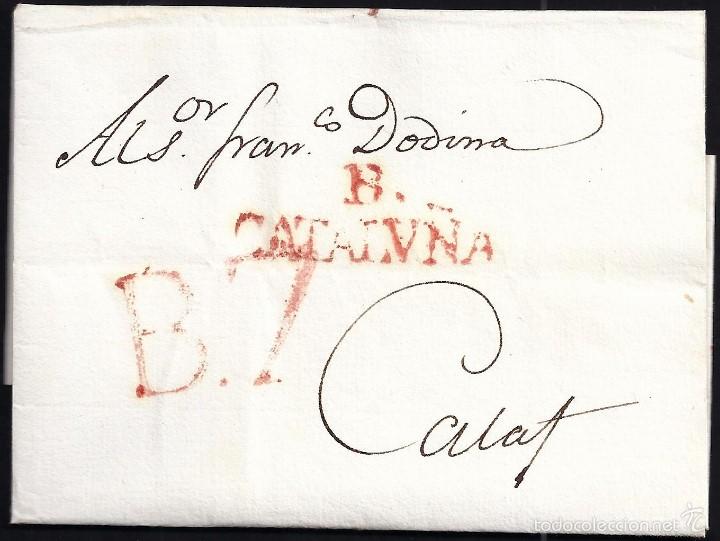 Al S.or Fran.co Dodina
B.
CATALVÑA
B.7
Calaf
todocoleccion.net